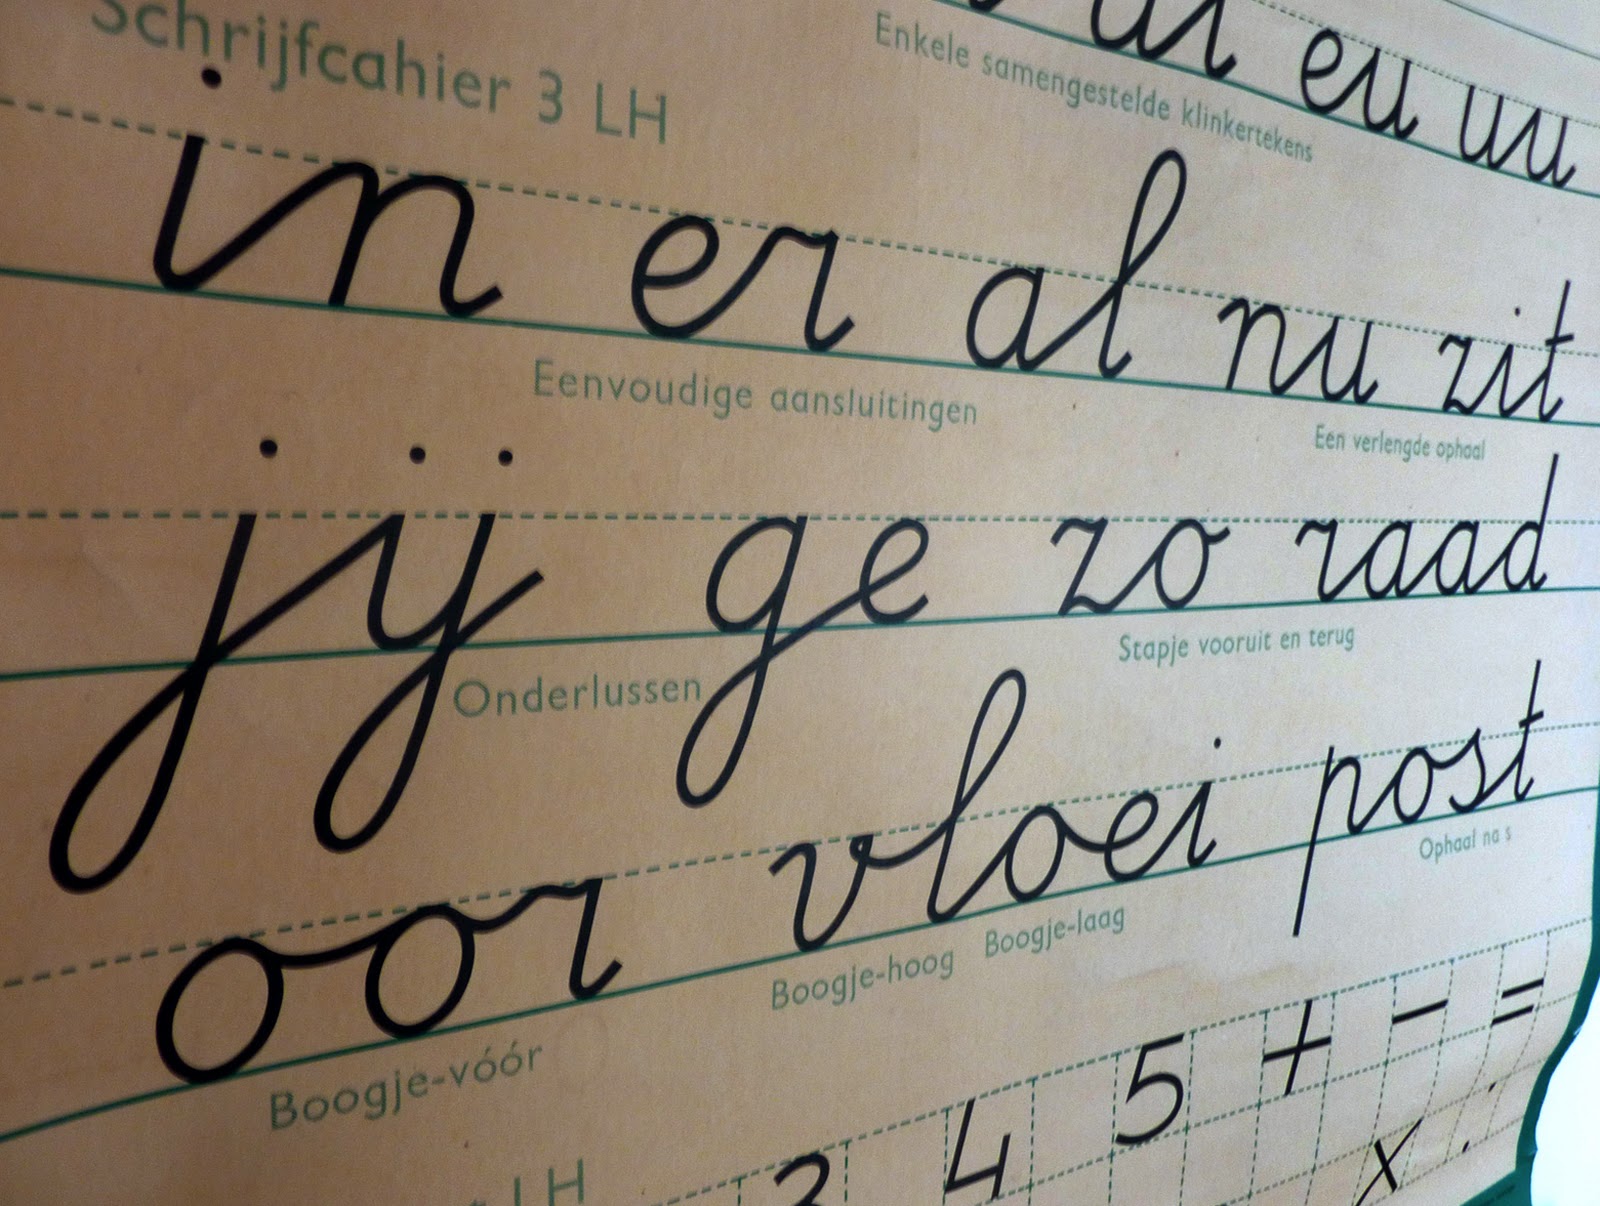 eu uu
Enkele samengestelde klinkertekens
Schrijfcahier 3 LH
in er al nu zit
Eenvoudige aansluitingen
Een verlengde ophaal
jij ge zo raad
Onderlussen
Stapje vooruit en terug
oor vloei post
Boogje-vóór
Boogje-hoog
Boogje-laag
Ophaal na s
3 4 5 + - =
x . :
LH